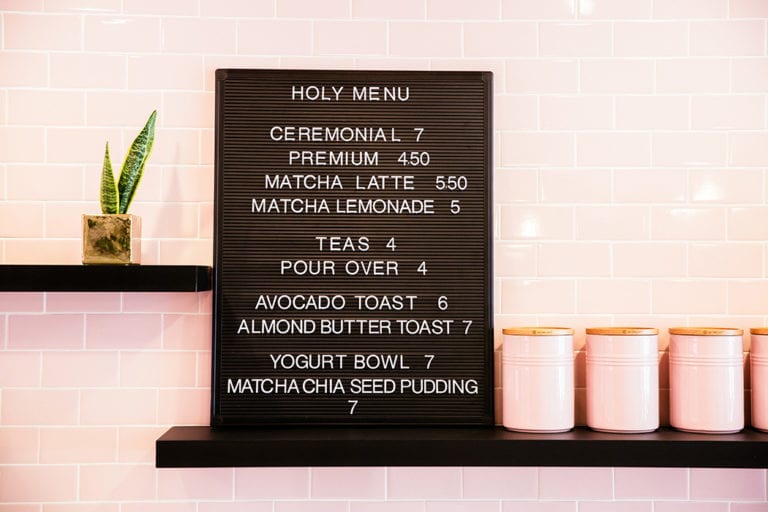 HOLY MENU
CEREMONIAL 7
PREMIUM 4.50
MATCHA LATTE 5.50
MATCHA LEMONADE 5
TEAS 4
POUR OVER 4
AVOCADO TOAST 6
ALMOND BUTTER TOAST 7
YOGURT BOWL 7
MATCHA CHIA SEED PUDDING
7